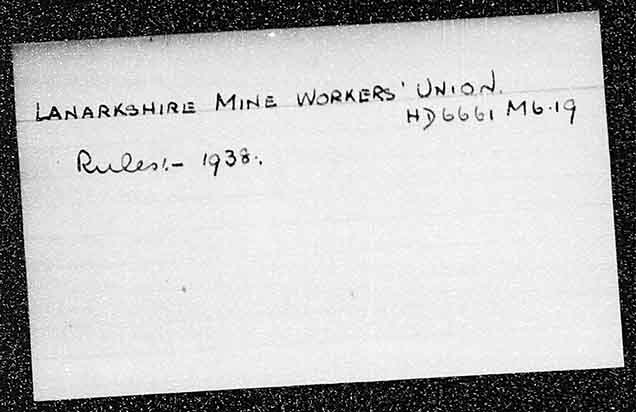 LANARKSHIRE MINE WORKERS' UNION.
HD6661 M6.19
Rules:- 1938.